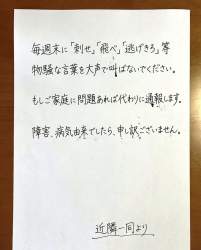 毎週末に「刺せ」「飛べ」「逃げきろ」等
物騒な言葉を大声で叫ばないでください。
もしご家庭に問題あれば代わりに通報します。
障害、病気由来でしたら、申し訳ございません。
近隣一同より